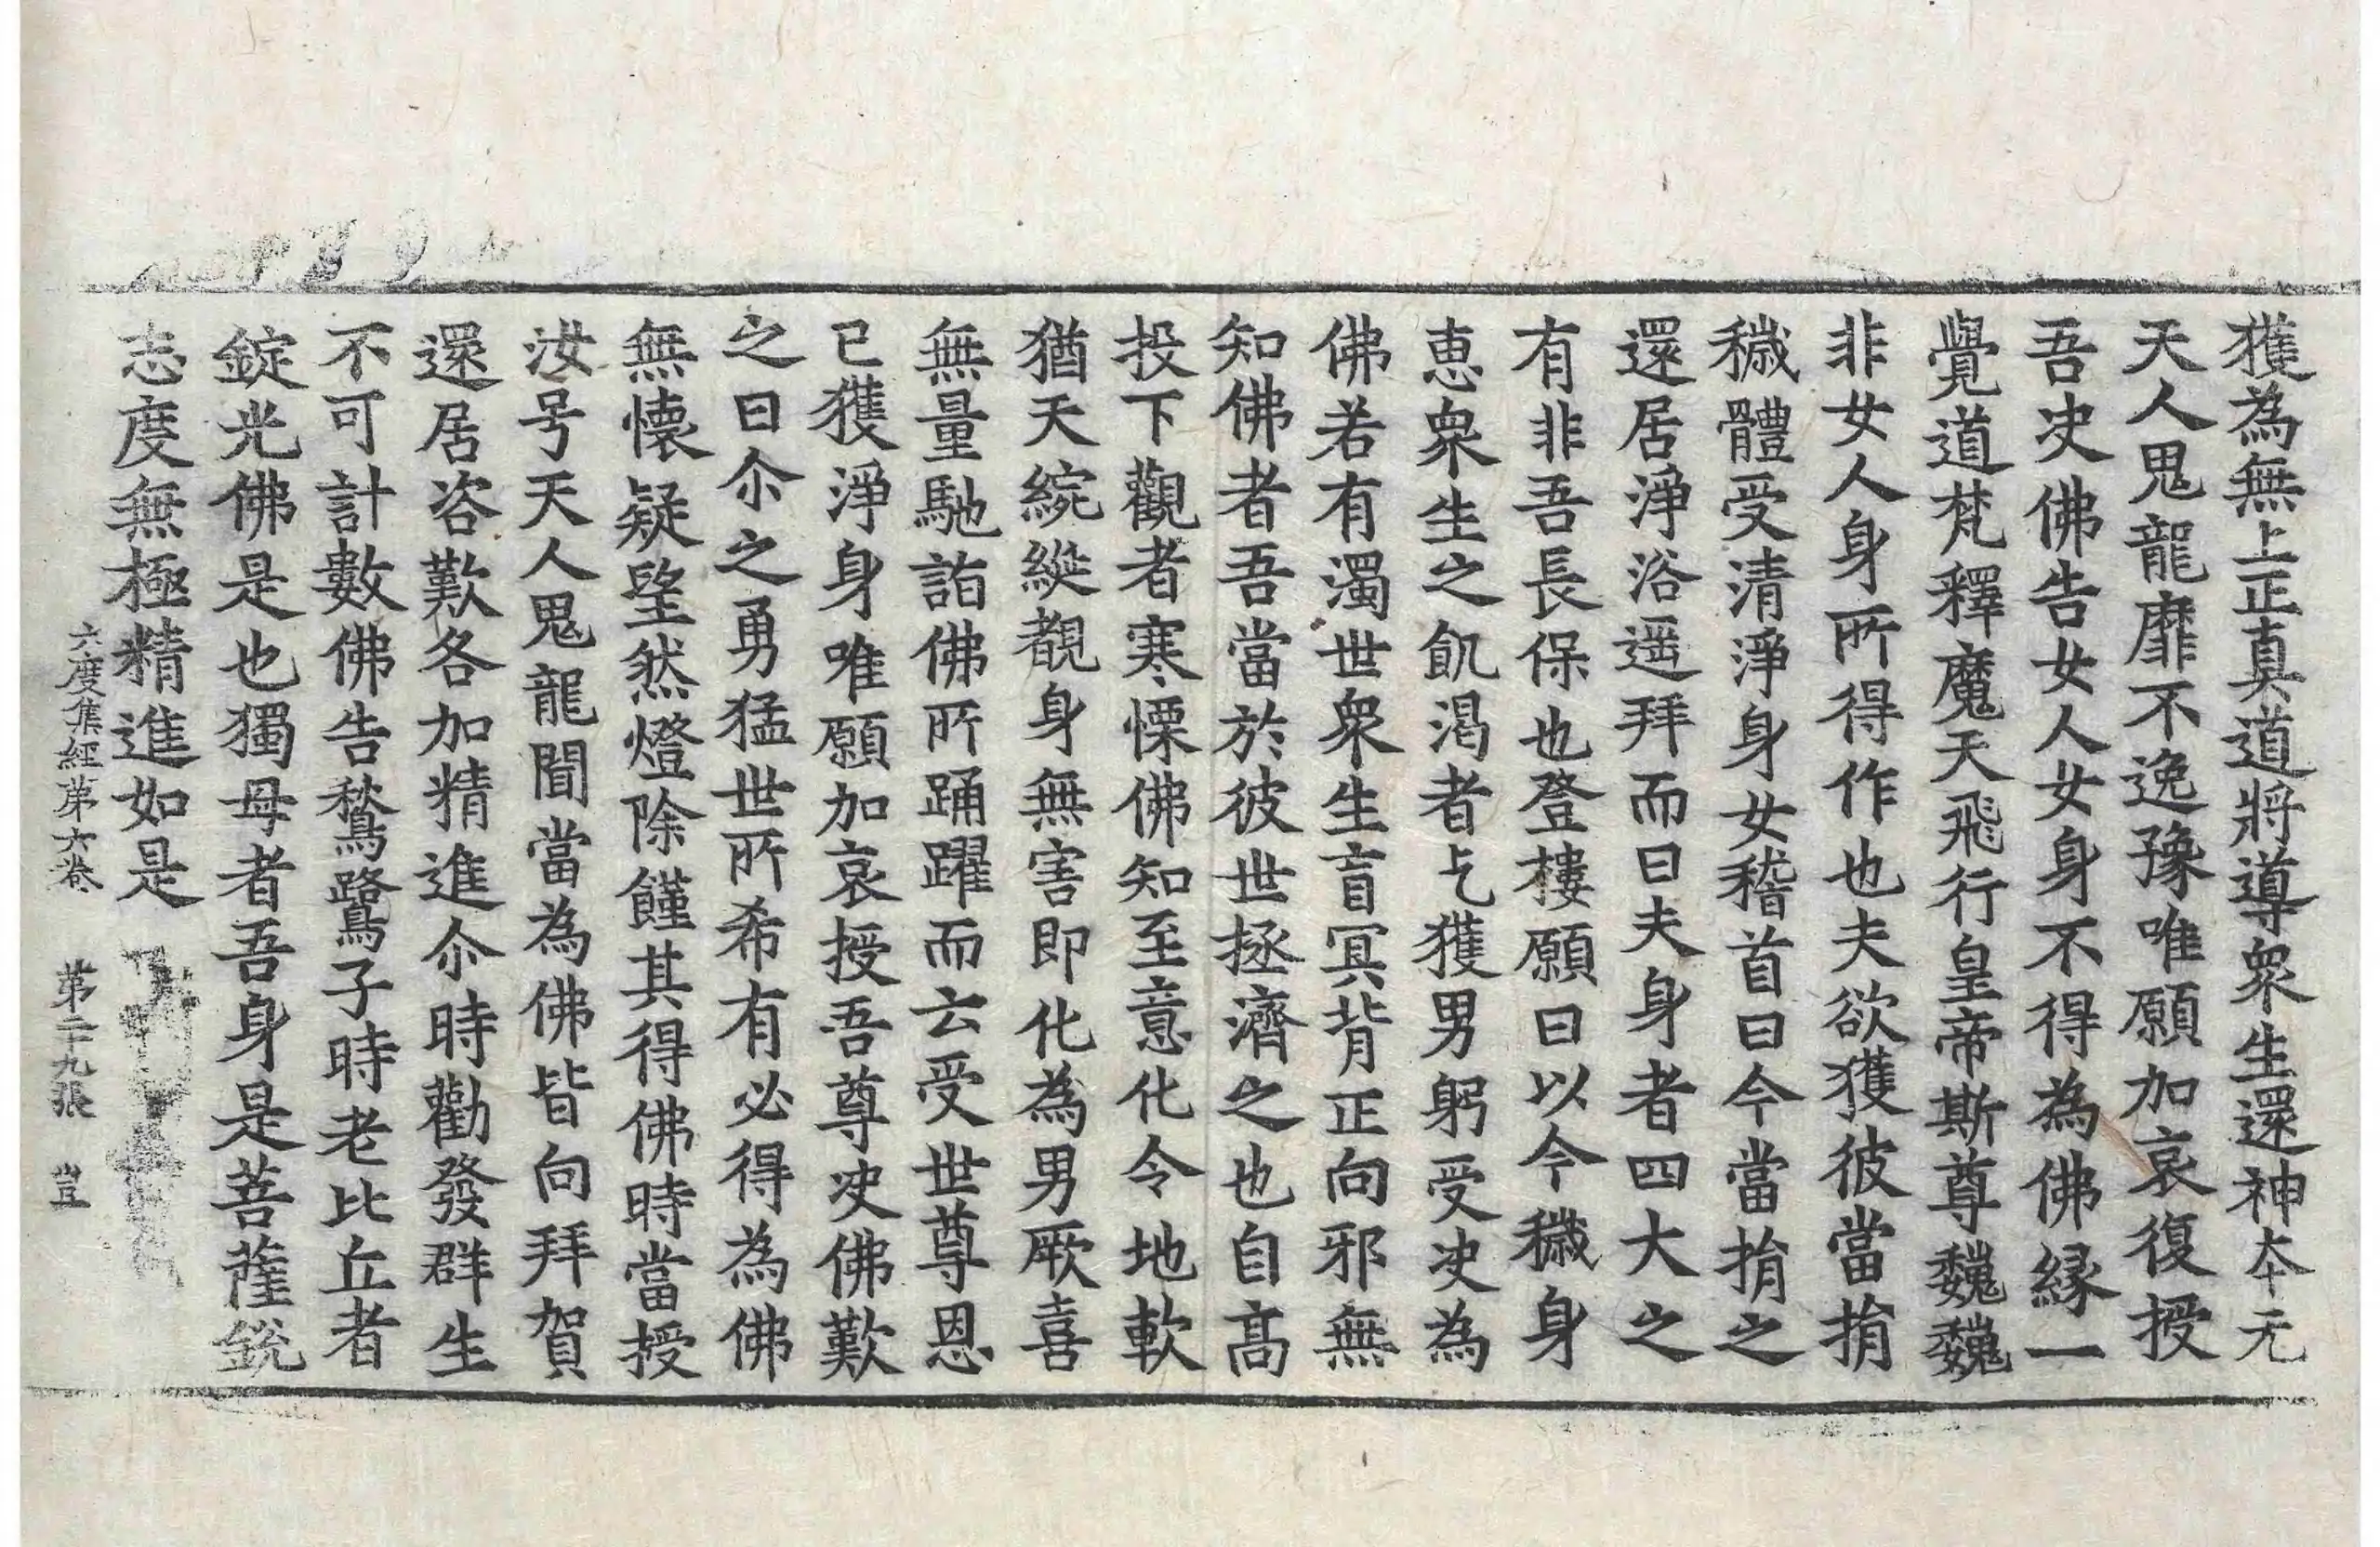 獲為無上正真道將導衆生還神夲无
天人鬼龍靡不逸豫唯願加哀復授
吾决佛告女人女身不得為佛緣一
覺道梵釋魔天飛行皇帝斯尊巍巍
非女人身所得作也夫欲獲彼當捐
穢體受清淨身女稽首曰今當捐之
還居淨浴遥拜而曰夫身者四大之
有非吾長保也登樓願曰以今穢身
惠衆生之飢渴者乞獲男躬受决為
佛若有濁世衆生盲冥背正向邪無
知佛者吾當於彼世拯濟之也自髙
投下觀者寒慄佛知至意化令地軟
猶天綩綖覩身無害即化為男厥喜
無量馳詣佛所踊躍而云受世尊恩
已獲淨身唯願加哀授吾尊决佛歎
之曰尒之勇猛世所希有必得為佛
無懷疑望然燈除饉其得佛時當授
汝号天人鬼龍聞當為佛皆向拜賀
還居咨歎各加精進尒時勸發群生
不可計數佛告鶖鷺子時老比丘者
錠光佛是也獨母者吾身是菩薩銳
志度無極精進如是
六度集經第六卷 第二十九張 豈